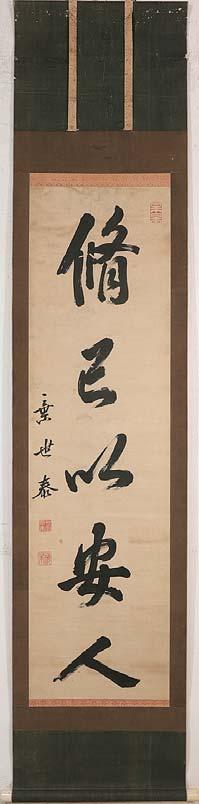 脩己以安人
葉世泰